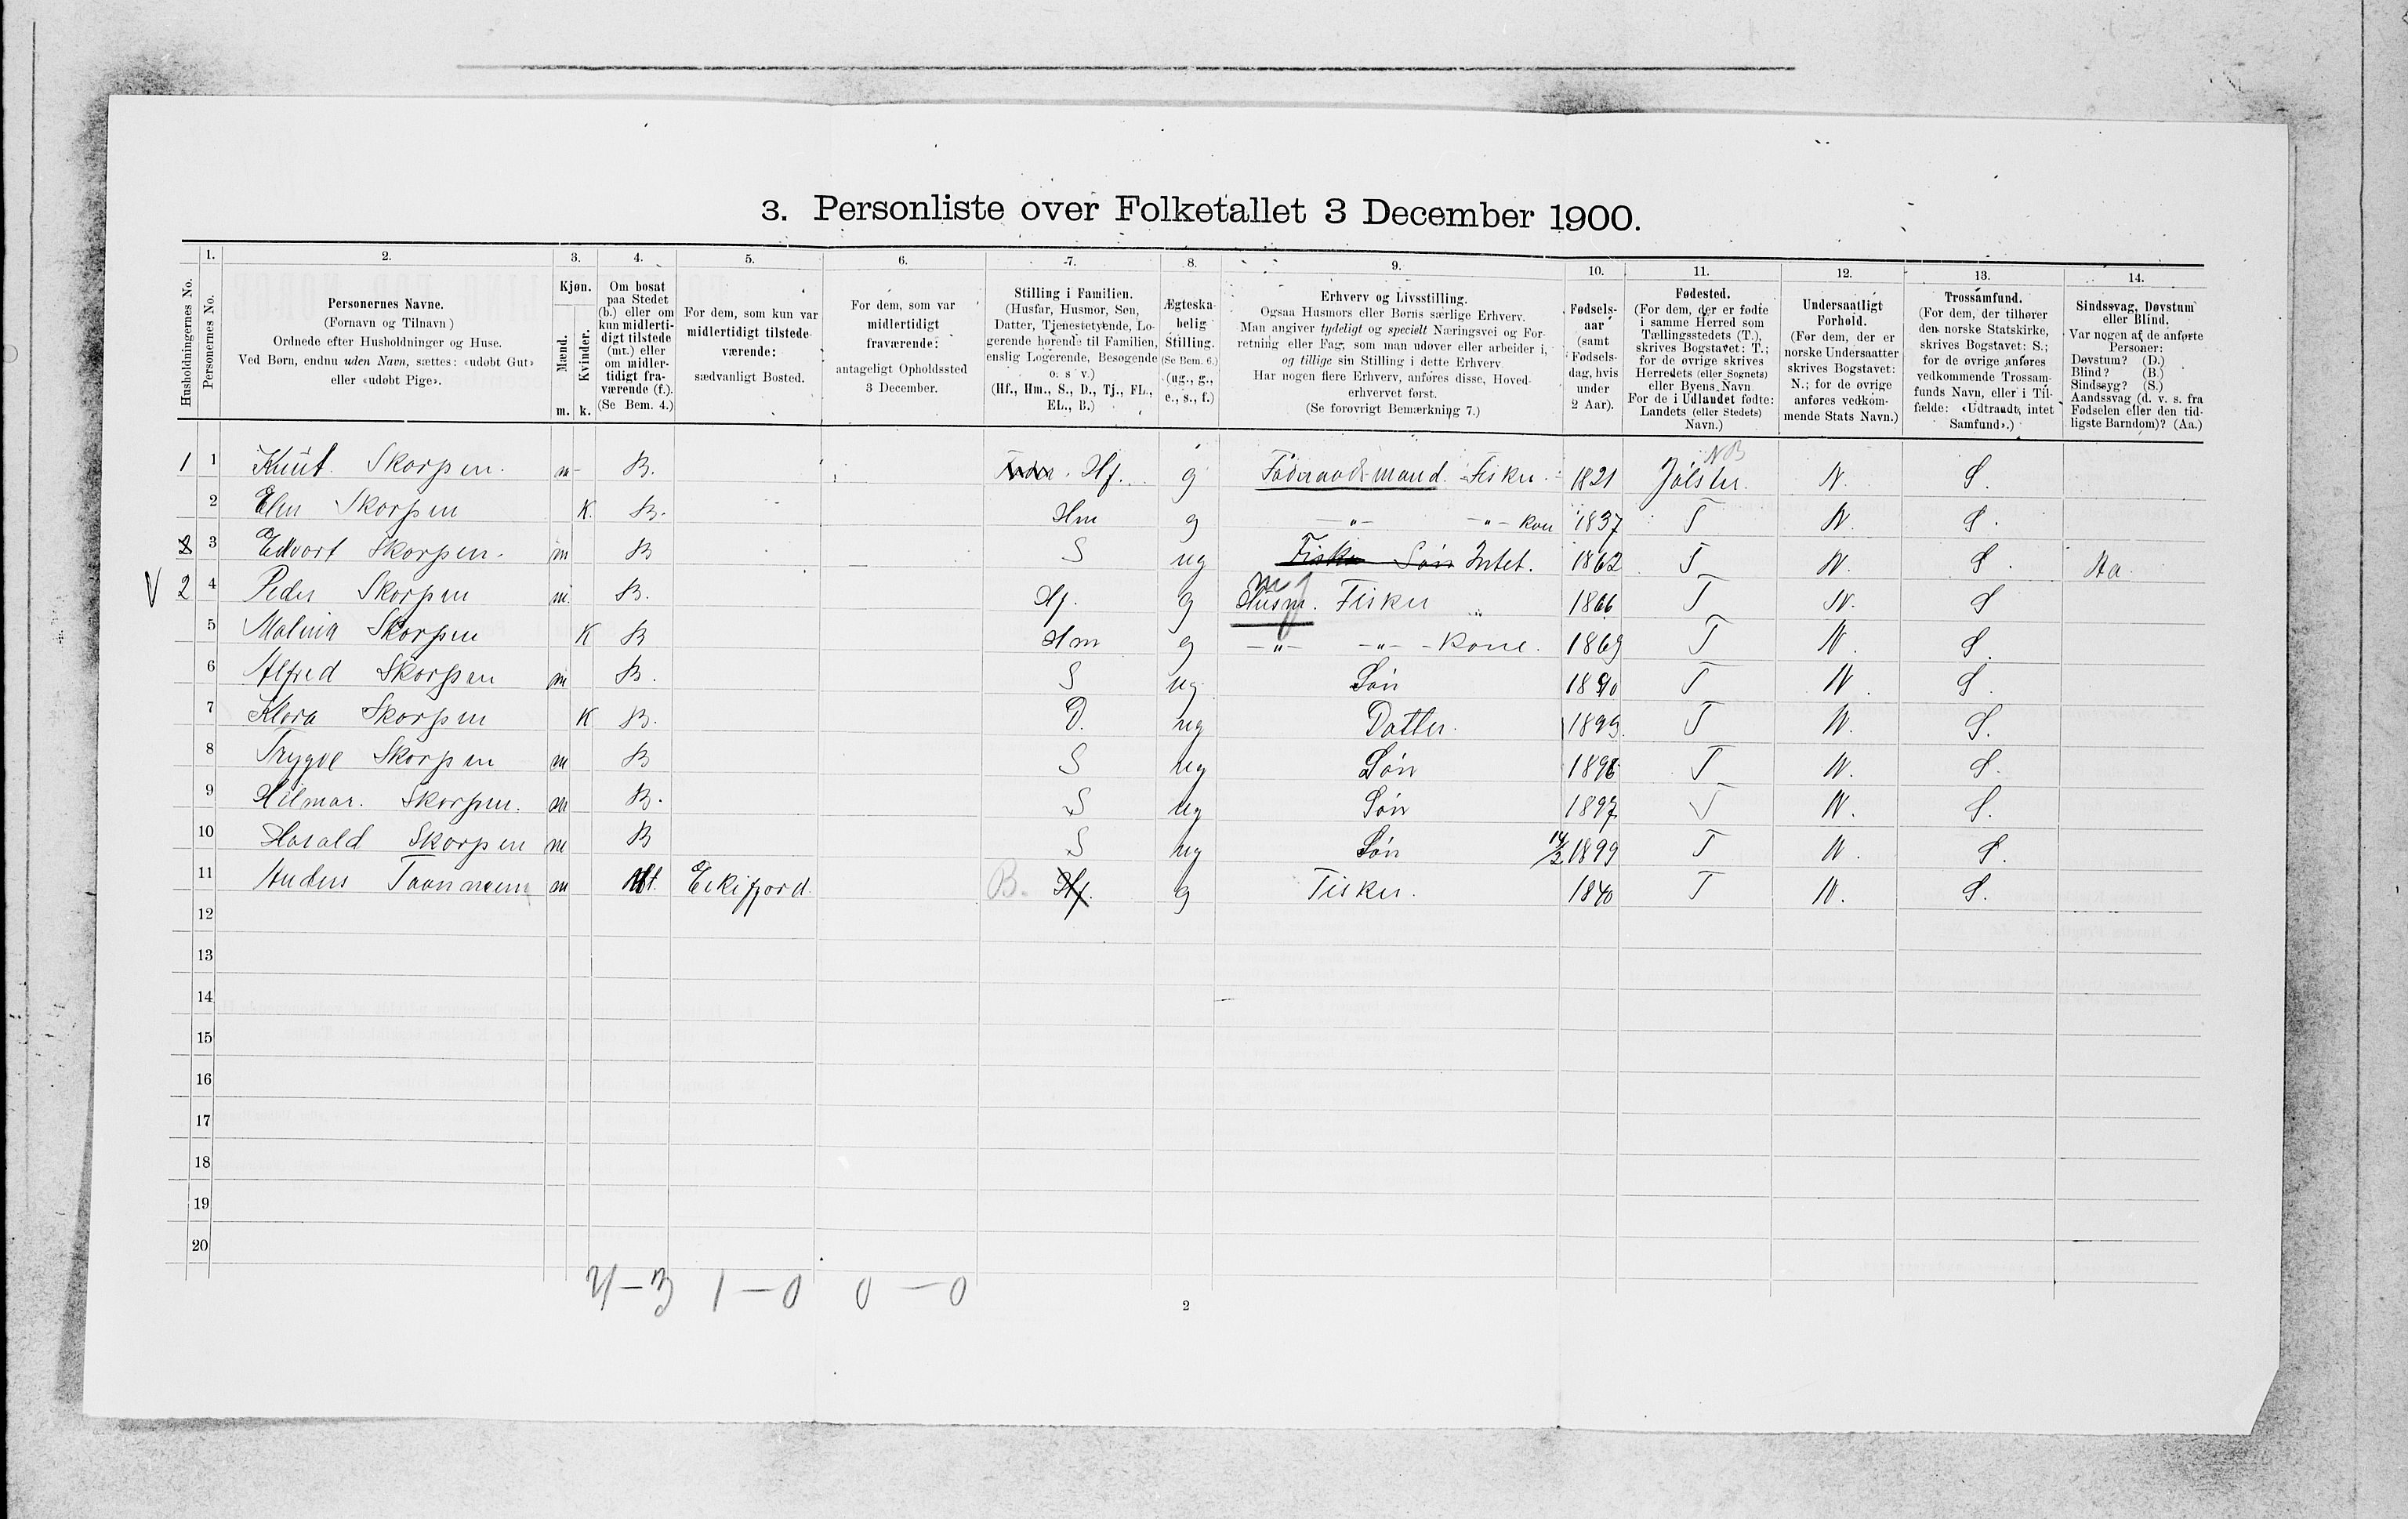 3. Personliste over Folketallet 3 December 1900.
Husholdningernes No.
1. Personernes No.
2. Personernes Navne.
(Fornavn og Tilnavn)
Ordnede efter Husholdninger og Huse.
Ved Børn, endnu uden Navn, sættes: «udøbt Gut»
eller «udøbt Pige».
3. Kjøn.
Mænd. m.
Kvinder. k.
4. Om bosat
paa Stedet
(b.) eller om
kun midlerti-
digt tilstede
(mt.) eller
om midler-
tidigt fra-
værende (f.).
(Se Bem. 4.)
5. For dem, som kun var
midlertidigt tilstede-
værende:
sædvanligt Bosted.
6. For dem, som var
midlertidigt
fraværende:
antageligt Opholdssted
3 December.
7. Stilling i Familien.
(Husfar, Husmor, Søn,
Datter, Tjenestetyende, Lo-
gerende hørende til Familien,
enslig Logerende, Besøgende
o. s. v.)
(Hf., Hm., S., D., Tj., FL.,
EL., B.)
8. Ægteska-
belig
Stilling.
(Se Bem. 6.)
(ug., g.,
e., s., f.)
9. Erhverv og Livsstilling.
Ogsaa Husmors eller Børns særlige Erhverv.
Man angiver tydeligt og specielt Næringsvei og For-
retning eller Fag, som man udøver eller arbeider i,
og tillige sin Stilling i dette Erhverv.
Har nogen flere Erhverv, anføres disse, Hoved-
erhvervet først.
(Se forøvrigt Bemærkning 7.)
10. Fødsels-
aar
(samt
Fødsels-
dag, hvis
under
2 Aar).
11. Fødested.
(For dem, der er fødte
i samme Herred som
Tællingsstedets (T.),
skrives Bogstavet: T.;
for de øvrige skrives
Herredets (eller Sognets)
eller Byens Navn.
For de i Udlandet fødte:
Landets (eller Stedets)
Navn.)
12. Undersaatligt
Forhold.
(For dem, der er
norske Undersaatter
skrives Bogstavet:
N.; for de øvrige
anføres vedkom-
mende Stats Navn.)
13. Trossamfund.
(For dem, der tilhører
den norske Statskirke,
skrives Bogstavet: S.;
for de øvrige anføres
vedkommende Trossam-
funds Navn, eller i Til-
fælde: «Udtraadt, intet
Samfund».)
14. Sindssvag, Døvstum
eller Blind.
Var nogen af de anførte
Personer:
Døvstum? (D.)
Blind? (B.)
Sindssyg? (S.)
Aandssvag (d. v. s. fra
Fødselen eller den tid-
ligste Barndom)? (Aa.)
NB
1 1 Knut Skorpen. m B. Hf. g Føderaadsmand. Fisker. 1821 Jølster. N. S.
2 Elen Skorpen K. B. Hm g —"— —"— kon 1837 T N. S.
3 Edvort Skorpen. m B S ug Fisker Søn Intet. 1862 T N. S. Aa.
V 2 4 Peder Skorpen m. B. Hf. g Husm. Fisker " 1866 T N. S
5 Malina Skorpen K B Hm g —"— —"— Kone. 1869 T N. S.
6 Alfred Skorpen m B. S ug Søn 1890 T N. S.
7 Klara Skorpen K B. D. ug Datter. 1893 T N. S.
8 Trygve Skorpen m B S ug Søn 1896 T N. S.
9 Hilmar. Skorpen. m B. S ug Søn 1897 T N. S.
10 Harald Skorpen m B S ug Søn 1899 T N. S.
11 Anders m Mt. Eikifjord. B. Hf. g Fisker. 1840 T N. S.
12
13
14
15
16
17
18
19
20
1 — 0 0 — 0
2